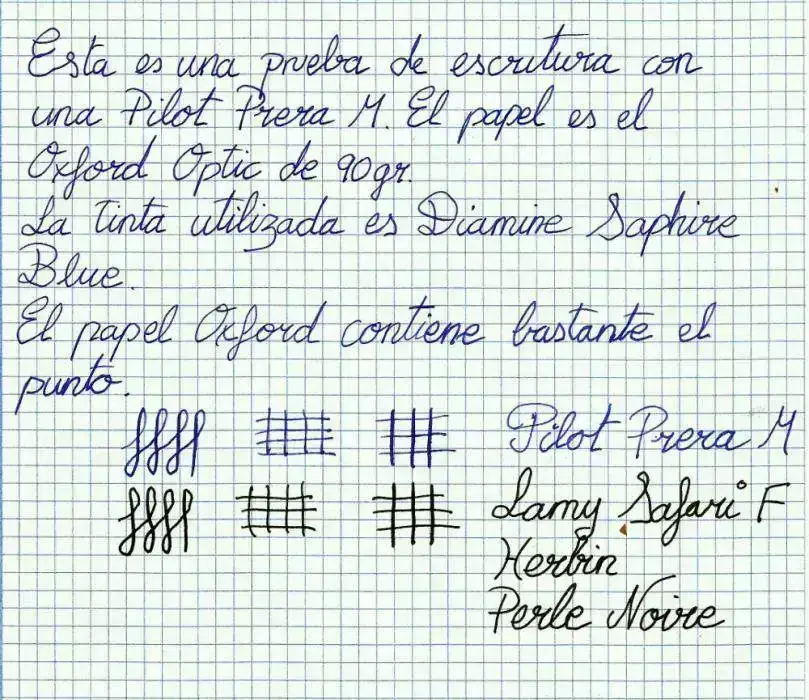 Esta es una prueba de escritura con
una Pilot Prera M. El papel es el
Oxford Optic de 90gr.
La tinta utilizada es Diamine Saphire
Blue.
El papel Oxford contiene bastante el
punto.
ffff Pilot Prera M
ffff Lamy Safari F
Herbin
Perle Noire